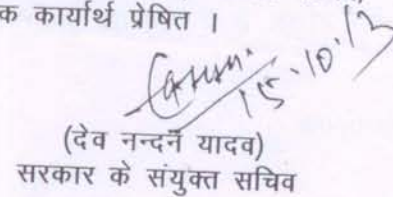 क कार्यार्थ प्रेषित ।
15.10.13
(देव नन्दन यादव)
सरकार के संयुक्त सचिव